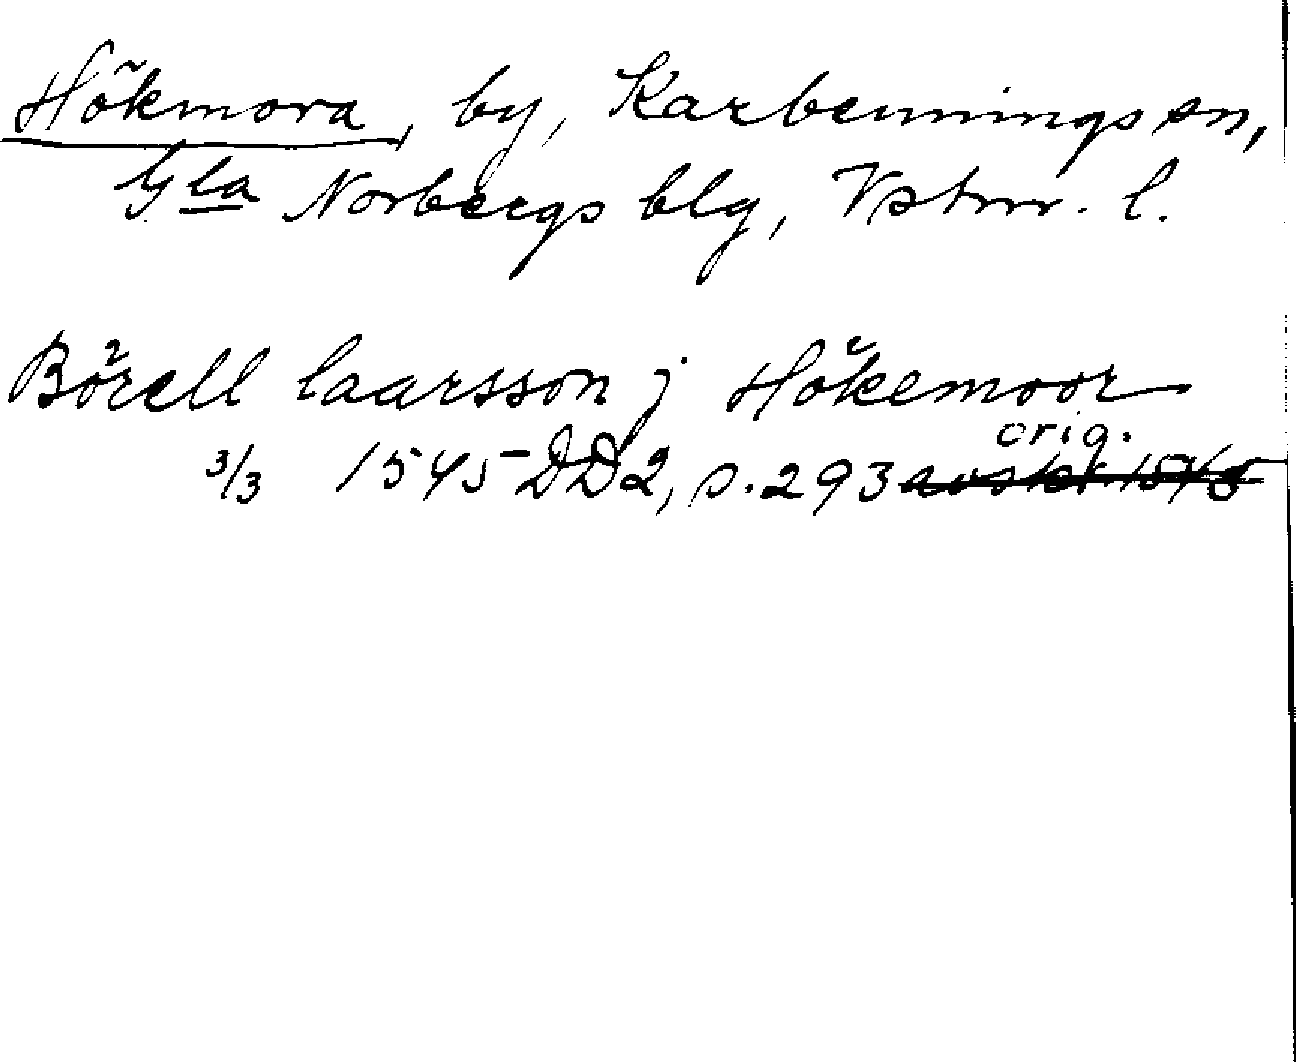 Hökmora, by, Karbennings sn,
Gla Norbergs blg, Vstm. l.
Börell laarsson j Hökemoor
orig.
3/3 1545 DD2, s. 293 avskr. 1545